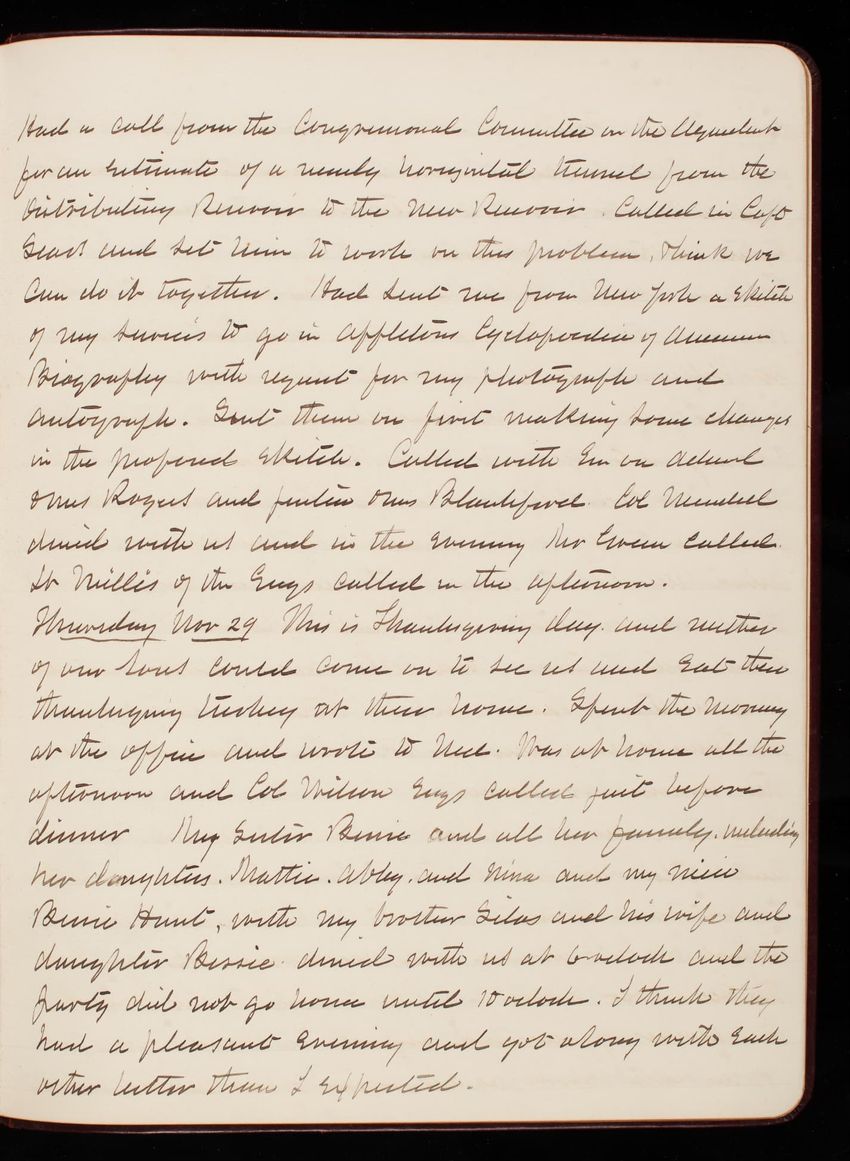 Had a call from the Congressional Committee on the Aqueduct
for an estimate of a nearly horizontal tunnel from the
distributing Reservoir to the New Reservoir. Called in Capt
and set him to work on this problem, think we
can do it together. Had sent me from New York a sketch
of my services to go in Appletons Cyclopoedia of American
Biography with request for my photograph and
autograph. Sent them on first making some changes
in the proposed sketch. Called with Em on Adml
& Mrs Rogers and find in Mrs Blackford. Col Mendell
dined with us and in the evening Mr Green called.
Lt Willis of the Engs called in the afternoon.
Thursday Nov 29 This is Thanksgiving day and neither
of our sons could come on to see us and eat their
thanksgiving turkey at their home. Spent the morning
at the office and wrote to Ned. Was at home all the
afternoon and Col Wilson Engs called just before
dinner My Sister Bessie and all her family, including
her daughters. Mattie. Abby. and Nina and my niece
Bessie Hunt, with my brother Silas and his wife and
daughter Bessie dined with us at 6 oclock and the
party did not go home until 10 oclock. I think they
had a pleasant evening and got along with each
other better than I expected.